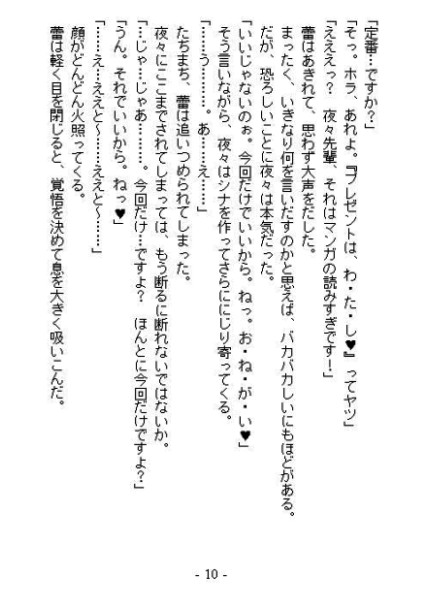 「定番…ですか？」
「そっ。ホラ、あれよ。『プレゼントは、わ・た・し♥』ってヤツ」
「えええっ？　夜々先輩、それはマンガの読みすぎです！」
蕾はあきれて、思わず大声をだした。
まったく、いきなり何を言いだすのかと思えば、バカバカしいにもほどがある。
だが、恐ろしいことに夜々は本気だった。
「いいじゃないのぉ。今回だけでいいから。ねっ。お・ね・が・い♥」
そう言いながら、夜々はシナを作ってさらににじり寄ってくる。
「……う………。あ……え……」
たちまち、蕾は追いつめられてしまった。
夜々にここまでされてしまっては、もう断るに断れないではないか。
「…じゃ…じゃあ………。今回だけ…ですよ？　ほんとに今回だけですよ？」
「うん。それでいいから。ねっ♥」
「……え…ええと～……ええと～……」
顔がどんどん火照ってくる。
蕾は軽く目を閉じると、覚悟を決めて息を大きく吸いこんだ。
- 10 -